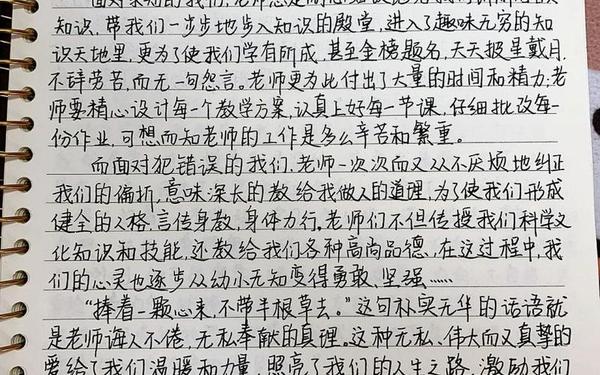 面对求知的我们,老师总是
知识,带我们一步步地步入知识的殿堂,进入了趣味无穷的知
识天地里,更为了使我们学有所成,甚至金榜题名,天天披星戴月,
不辞劳苦,而无一句怨言。老师更为此付出了大量的时间和精力:老
师要精心设计每一个教学方案,认真上好每一节课,仔细批改每一
份作业,可想而知老师的工作是多么辛苦和繁重。
而面对犯错误的我们,老师一次次而又从不厌烦地纠正
我们的偏折,意味深长的教给我做人的道理,为了使我们形成
健全的人格,言传身教,身体力行。老师们不但传授我们科学文
化知识和技能,还教给我们各种高尚品德,在这过程中,我
们的心灵也逐步从幼小无知变得勇敢、坚强……
“捧着一颗心来,不带半根草去。”这句朴实无华的话语就
是老师诲人不倦,无私奉献的真理。这种无私、伟大而又真挚的
爱给了我们温暖和力量,照亮了我们的人生之路,激励我们